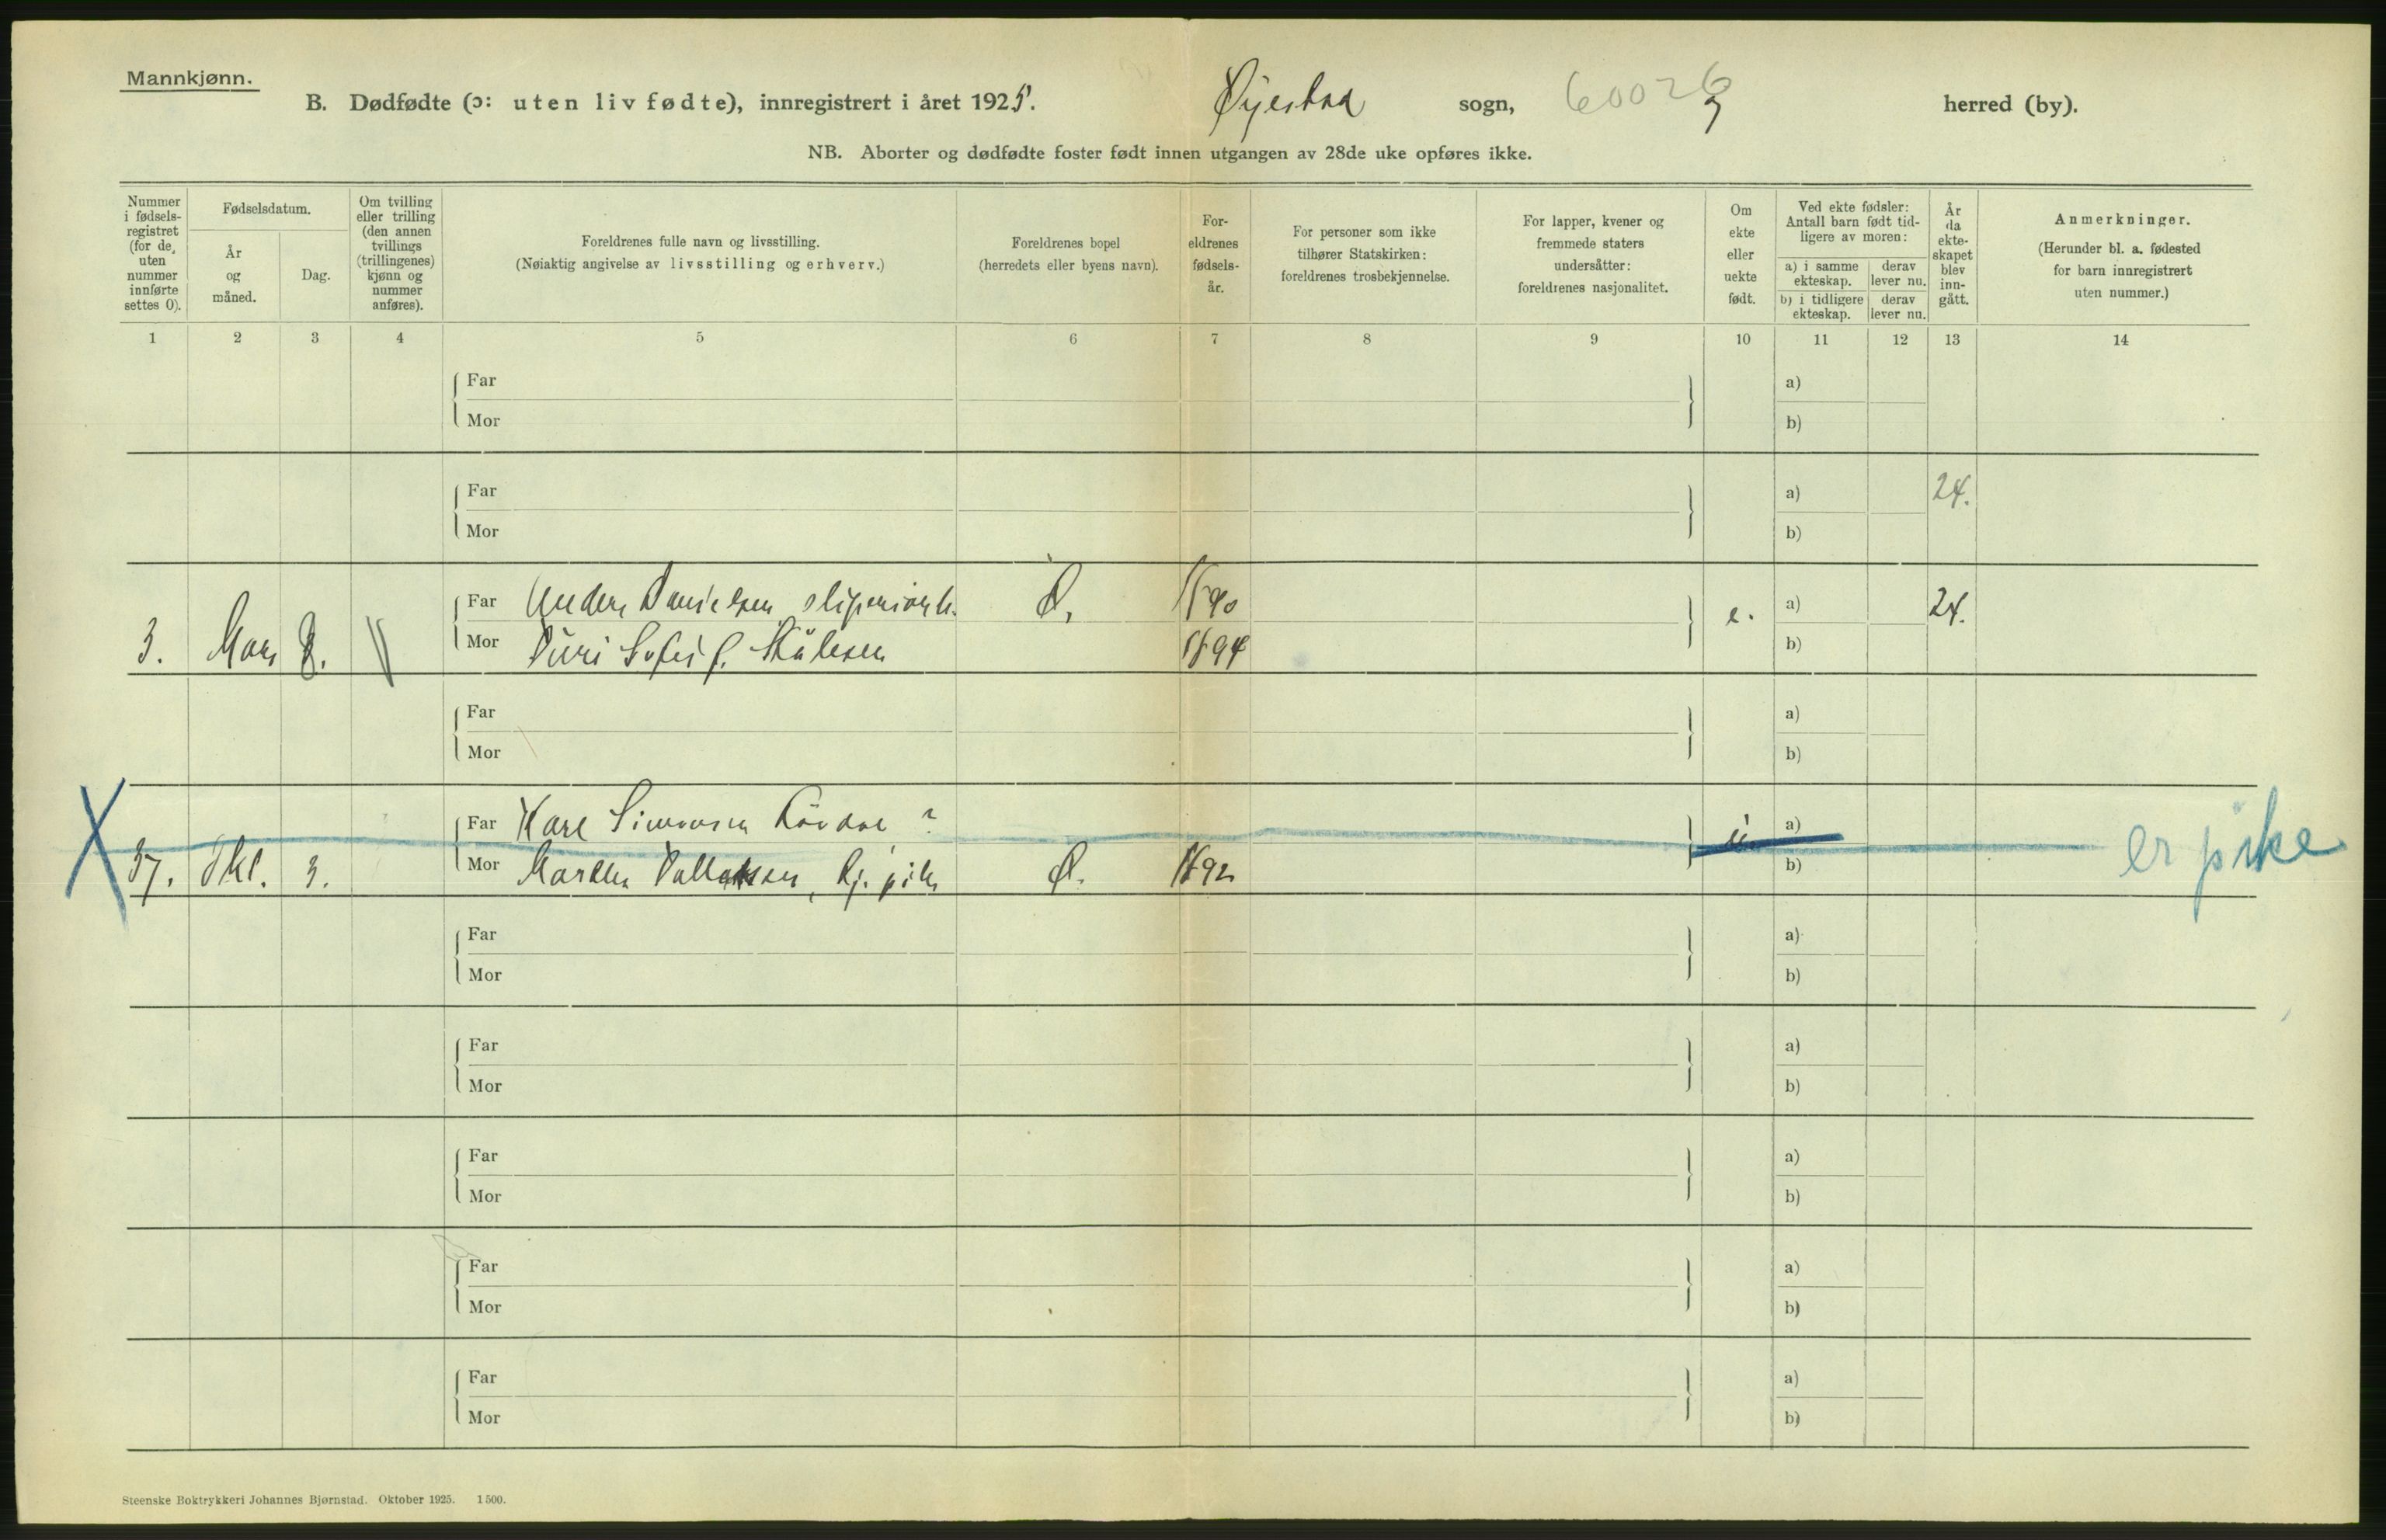 Mannkjønn.
B. Dødfødte (ɔ: uten liv fødte), innregistrert i året 1925. Øyestad sogn, 60026 herred (by).
NB. Aborter og dødfødte foster født innen utgangen av 28de uke opføres ikke.
Nummer i fødsels-registret (for de uten nummer innførte settes 0).
Fødselsdatum.
År og måned.
Dag.
Om tvilling eller trilling (den annen tvillings (trillingenes) kjønn og nummer anføres).
Foreldrenes fulle navn og livsstilling.
(Nøiaktig angivelse av livsstilling og erhverv.)
Foreldrenes bopel
(herredets eller byens navn).
For-eldrenes fødsels-år.
For personer som ikke tilhører Statskirken: foreldrenes trosbekjennelse.
For lapper, kvener og fremmede staters undersåtter: foreldrenes nasjonalitet.
Om ekte eller uekte født.
Ved ekte fødsler: Antall barn født tid-ligere av moren:
a) i samme ekteskap.
derav lever nu.
b) i tidligere ekteskap.
derav lever nu.
År da ekte-skapet blev inn-gått.
Anmerkninger.
(Herunder bl. a. fødested for barn innregistrert uten nummer.)
1 2 3 4 5 6 7 8 9 10 11 12 13 14
Far a)
Mor b)
Far a) 24.
Mor b)
Far Danielsen Ø. 1890 e. a) 24.
3. Mars 8. Mor Sofie f. 1894 b)
Far a)
Mor b)
Far Karl Simonsen ? u. a) er pike
37. Okt. 3. Mor Ø. 1892 b)
Far a)
Mor b)
Far a)
Mor b)
Far a)
Mor b)
Far a)
Mor b)
Far a)
Mor b)
Steenske Boktrykkeri Johannes Bjørnstad. Oktober 1925. 1500.